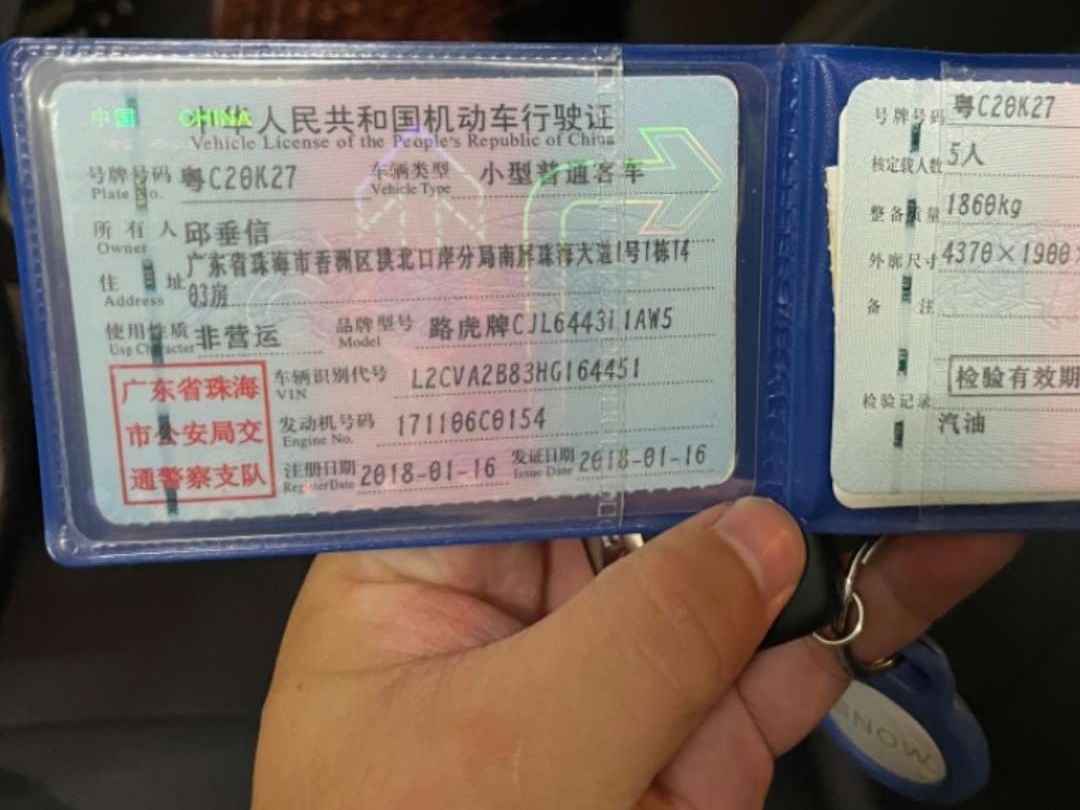 中国 CHINA
中华人民共和国机动车行驶证
Vehicle License of the People's Republic of China
号牌号码 粤C20K27 车辆类型 小型普通客车
Plate No. Vehicle Type
所有人 邱垂信
Owner
住址 广东省珠海市香洲区拱北口岸分局南屏珠海大道1号1栋14
Address 03房
使用性质 非营运 品牌型号 路虎牌CJL6443L1AW5
Use Character Model
广东省珠海
市公安局交
通警察支队
车辆识别代号 L2CVA2B83HG164451
VIN
发动机号码 171106C0154
Engine No.
注册日期 2018-01-16 发证日期 2018-01-16
Register Date Issue Date
号牌号码 粤C20K27
核定载人数 5人
整备质量 1860kg
外廓尺寸 4370×1900×
备注
检验有效期
检验记录
汽油